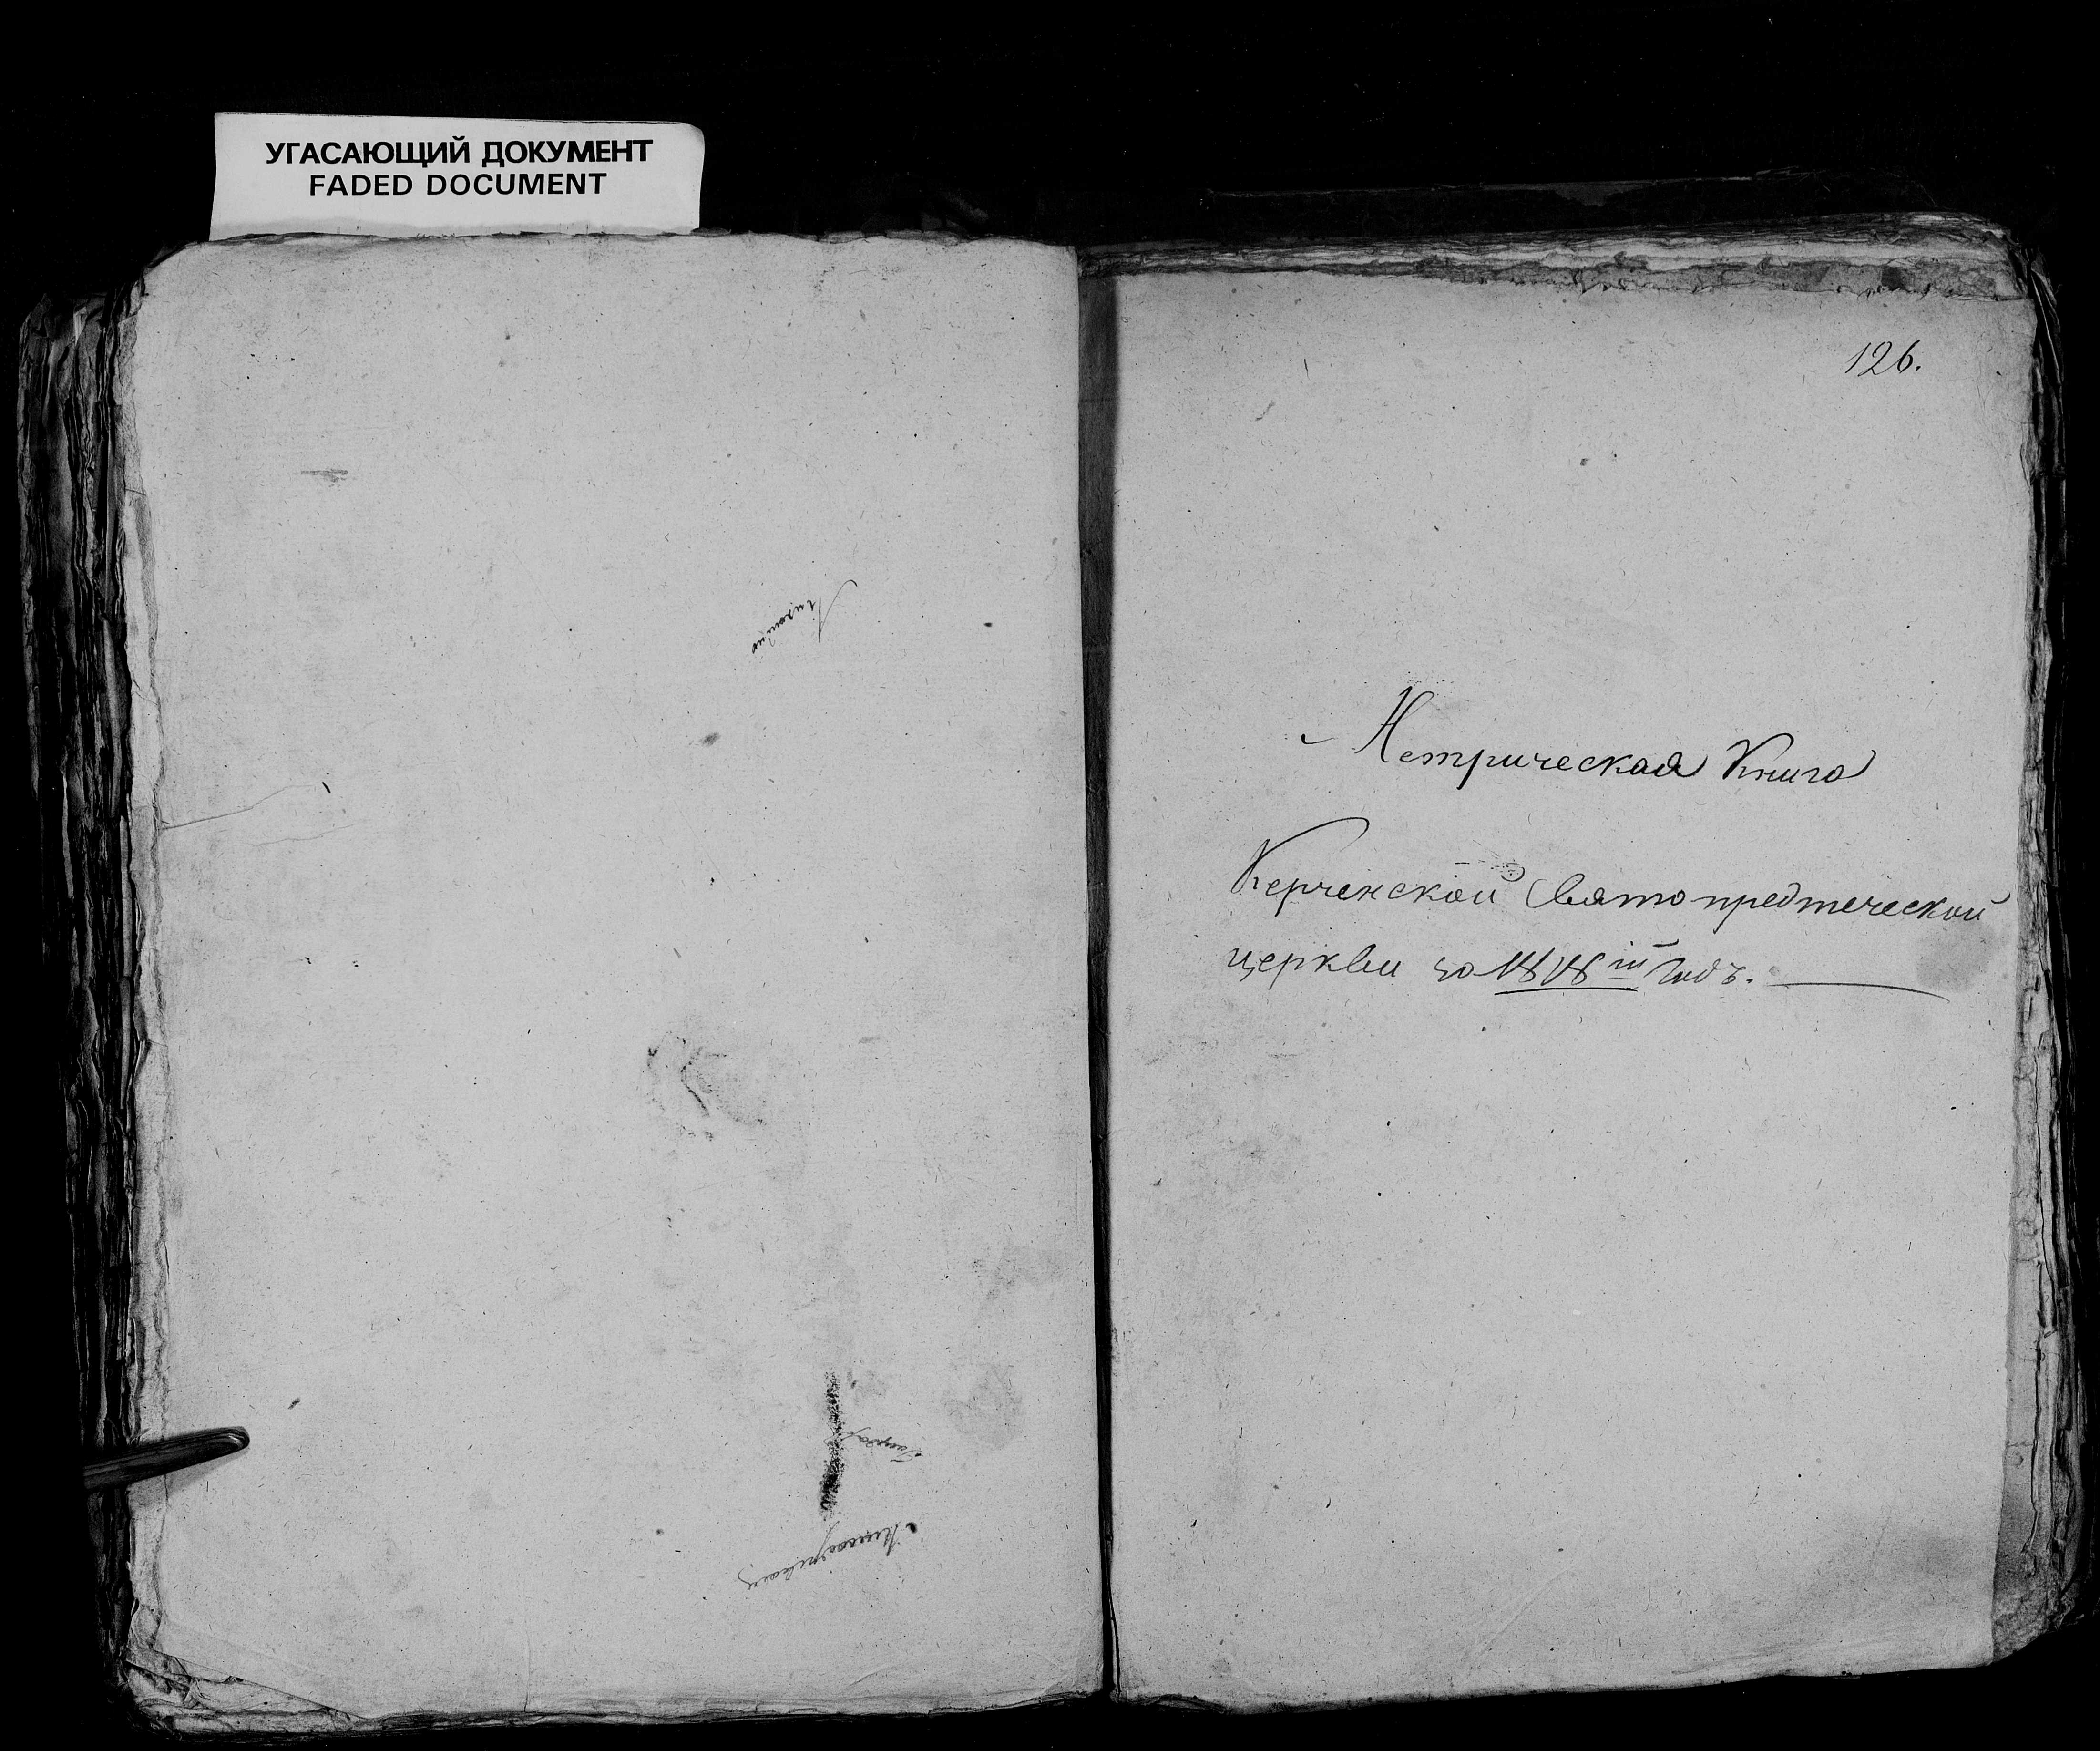 УГАСАЮЩИЙ ДОКУМЕНТ
FADED DOCUMENT
126.
Метрическая Книга
Керченской Святопредтеческой
церкви за 1818 ій Годъ.